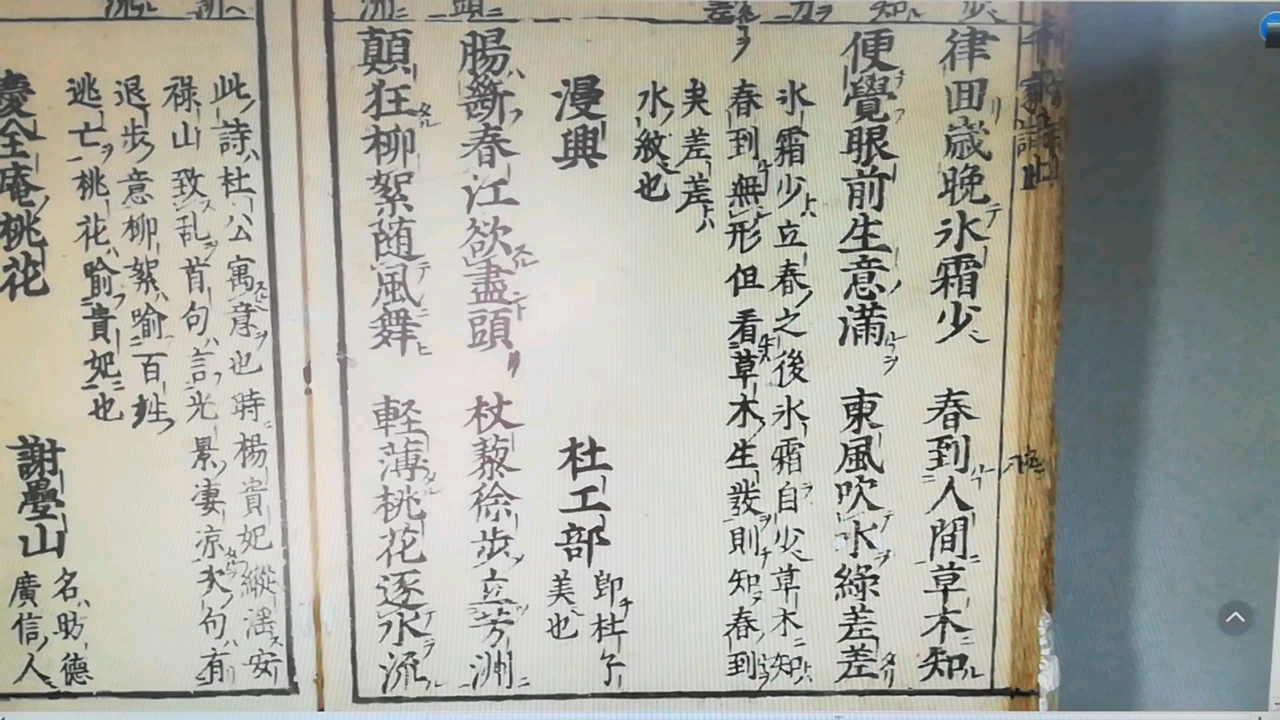 律回歳晩氷霜少 春到人間草木知
便覺眼前生意滿 東風吹水緑差差
氷霜少立春之後氷霜自少草木知
春到無形但看草木生發則知春到
矣差差
水紋也
漫興 杜工部 即杜子美也
腸斷春江欲盡頭 杖藜徐歩立芳洲
顛狂柳絮随風舞 軽薄桃花逐水流
此詩杜公寓意也時楊貴妃縱淫安
禄山致乱首句言光景凄凉次句有
退歩意柳絮喻百姓
逃亡桃花喻貴妃也
慶全庵桃花 謝疊山 名昉德廣信人